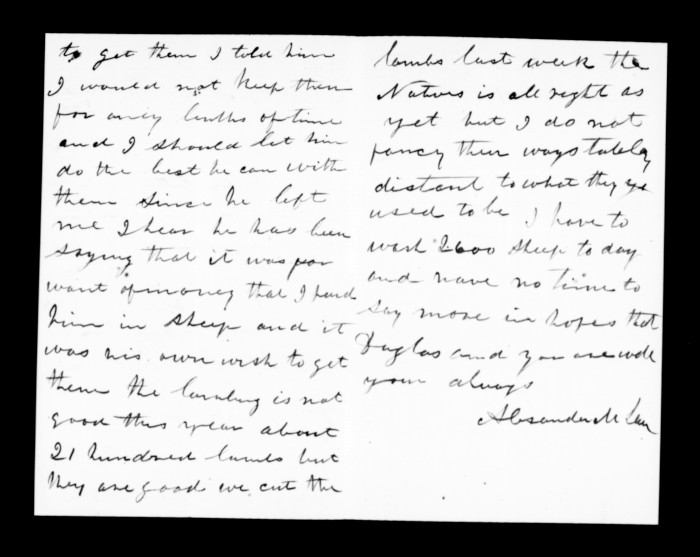 to get them I told him
I would not keep them
for any lenths of time
and I should let him
do the best he can with
them since he left
me I hear he has been
saying that it was for
want of money that I paid
him in sheep and it
was his own wish to get
them the lambing is not
good this year about
21 hundred lambs but
they are good we cut the
lambs last week the
Natives is all right as
yet but I do not
fancy their ways totaly
distant to what they
used to be I have to
wash 2600 sheep to day
and have no time to
say more in hopes that
Duglas and you are well
your always
Alexander